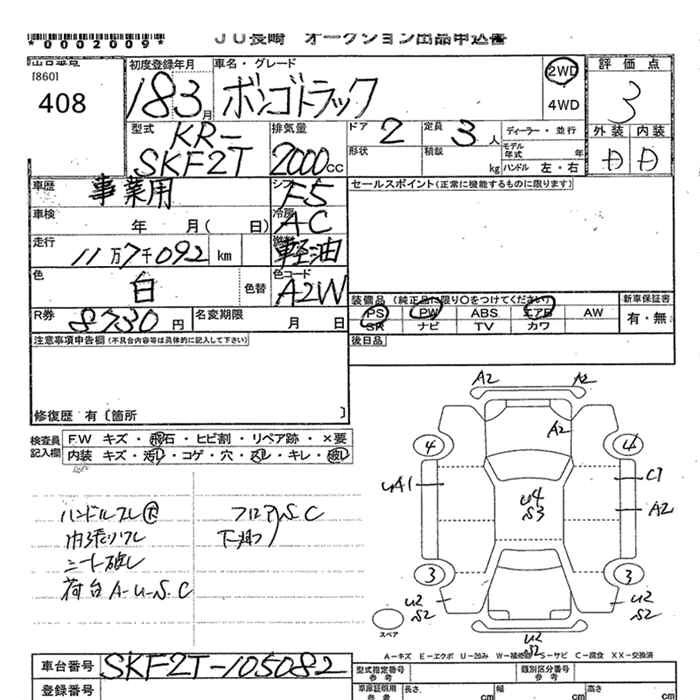 *0002009*
JU長崎 オークション出品申込書
[860]
408
初度登録年月
18 3 月
車名・グレード
ボンゴトラック
2WD
4WD
評価点
3
外装 内装
D D
型式
KR-
SKF2T
排気量
2000 cc
ドア 2
定員 3 人
形状
積載 kg
ディーラー・並行
モデル年式 年
ハンドル 左・右
車歴 事業用
シフト F5
セールスポイント(正常に機能するものに限ります)
車検 年 月( 日)
冷房 AC
走行 11万7千092 km
燃料 軽油
色 白 色替
色コード A2W
装備品 (純正品に限り○をつけてください)
新車保証書
PS PW ABS エアB AW
有・無
SR ナビ TV カワ
R券 8730 円
名変期限 月 日
後日品
注意事項申告欄(不具合内容等は具体的に記入して下さい)
修復歴 有〔箇所 〕
検査員
記入欄
F.W キズ・飛石・ヒビ割・リペア跡・×要
内装 キズ・汚れ・コゲ・穴・・キレ・破れ
シート破れ
荷台 A-U-S.C
フロアS C
A2 A2
A2
4 4
UA1
C1
U4
S3
A2
3 3
U2
S2
U2
S2
U2
S2
スペア
A-キズ E-エクボ U-凹み W-補修跡 S-サビ C-腐食 XX-交換済
車台番号 SKF2T-105082
登録番号
型式指定番号
参考
類別区分番号
参考
車庫証明用
参考
長さ cm
幅 cm
高さ cm